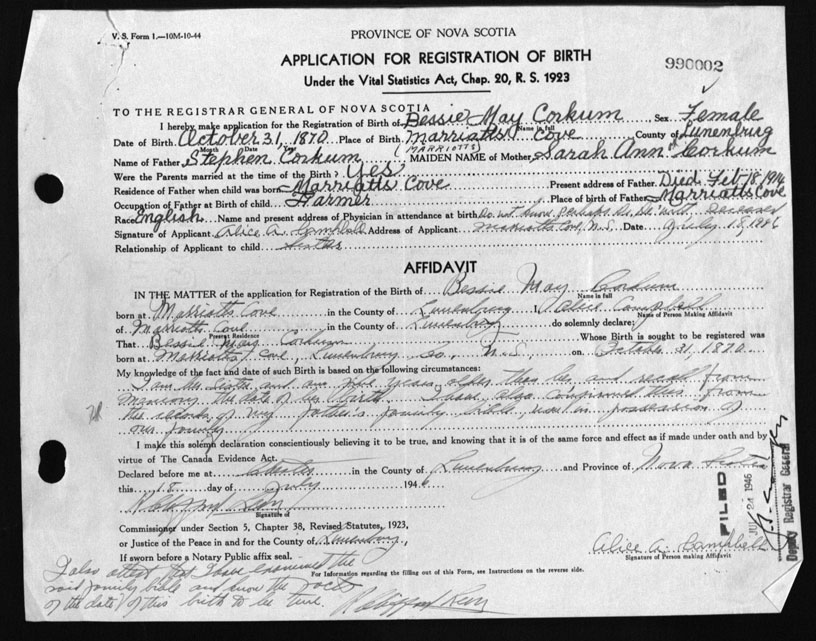 V. S. Form 1.—10M-10-44
PROVINCE OF NOVA SCOTIA
APPLICATION FOR REGISTRATION OF BIRTH
990002
Under the Vital Statistics Act, Chap. 20, R. S. 1923
TO THE REGISTRAR GENERAL OF NOVA SCOTIA
I hereby make application for the Registration of Birth of Bessie May Corkum Sex Female
Name in full
Date of Birth October 31, 1870 Place of Birth Marriatts Cove County of Lunenburg
Month Date Year
(MARRIOTTS)
Name of Father Stephen Corkum MAIDEN NAME of Mother Sarah Ann Corkum
Were the Parents married at the time of the Birth? Yes
Residence of Father when child was born Marriatts Cove Present address of Father Died Feb 18, 1914
Occupation of Father at Birth of Child Farmer Place of birth of Father Marriatts Cove
Race English Name and present address of Physician in attendance at birth Do not know, perhaps Dr. Deceased
Signature of Applicant Alice A. Campbell Address of Applicant Marriotts Cove, N.S. Date July 18, 1946
Relationship of Applicant to child Sister
AFFIDAVIT
IN THE MATTER of the application for Registration of the Birth of Bessie May Corkum
Name in full
born at Marriotts Cove in the County of Lunenburg I, Alice Campbell
Name of Person Making Affidavit
of Marriotts Cove in the County of Lunenburg do solemnly declare;
Present Residence
That Bessie May Corkum Whose Birth is sought to be registered was
born at Marriotts Cove, Lunenburg Co., N.S., on October 31, 1870.
My knowledge of the fact and date of such Birth is based on the following circumstances:
I am her sister and am five years older than her and recall from
memory the date of her birth. I have also confirmed this from
the records of my father's family bible, now in possession of
our family
I make this solemn declaration conscientiously believing it to be true, and knowing that it is of the same force and effect as if made under oath and by
virtue of The Canada Evidence Act.
Declared before me at Chester in the County of Lunenburg and Province of Nova Scotia
this 18 day of July 1946
Signature of
Commissioner under Section 5, Chapter 38, Revised Statutes, 1923,
or Justice of the Peace in and for the County of Lunenburg,
If sworn before a Notary Public affix seal.
Alice A. Campbell
Signature of Person making Affidavit
FILED
JUL 24 1946
Deputy Registrar General
For Information regarding the filling out of this Form, see Instructions on the reverse side.
I also attest that I have examined the
said family bible and know the facts
of the date of this birth to be true.